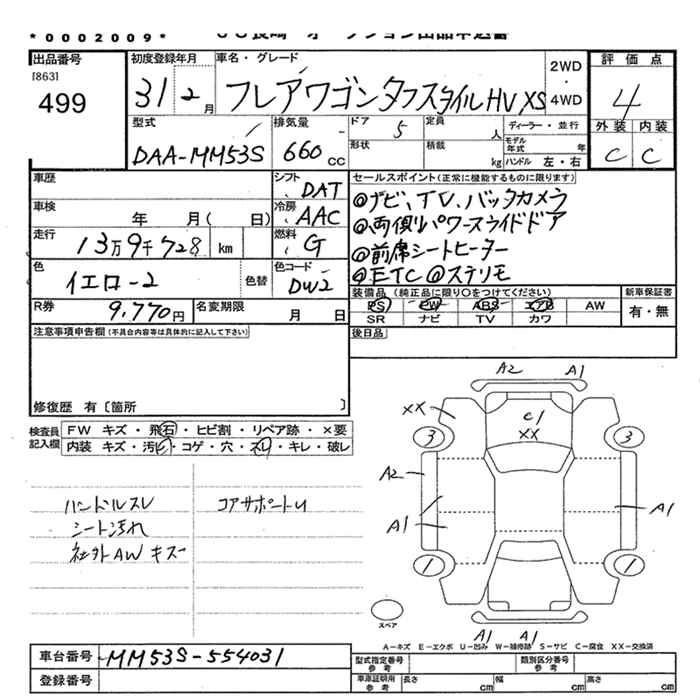 *0002009*
出品番号
[863]
499
初度登録年月
31 2月
車名・グレード
フレアワゴンタフスタイルHV XS
2WD
・
4WD
評価点
4
外装 内装
C C
型式
DAA-MM53S
排気量
660 CC
ドア 5
形状
定員 人
積載 kg
ディーラー・並行
モデル年式 年
ハンドル 左・右
車歴
車検
年 月( 日)
走行
13万9千728 km
色
イエロー2
色替
シフト
DAT
冷房
AAC
燃料
G
色コード
DW2
R券 9,770円
名変期限 月 日
セールスポイント(正常に機能するものに限ります)
◎ナビ、TV、バックカメラ
◎両側パワースライドドア
◎前席シートヒーター
◎ETC ◎ステリモ
装備品(純正品に限り○をつけてください)
PS PW ABS エアB AW
SR ナビ TV カワ
新車保証書
有・無
後日品
注意事項申告欄(不具合内容等は具体的に記入して下さい)
修復歴 有〔箇所 〕
検査員記入欄
FW キズ・飛石・ヒビ割・リペア跡・×要
内装 キズ・汚れ・コゲ・穴・スレ・キレ・破レ
ハンドルスレ
シート汚れ
社外AWキズ
コアサポートU
A2 A1
XX
C1
XX
3 3
A2
A1
A1
1 1
スペア
A1 A1
A-キズ E-エクボ U-凹み W-補修跡 S-サビ C-腐食 XX-交換済
車台番号 MM53S-554031
登録番号
型式指定番号 参考
類別区分番号 参考
車庫証明用 参考
長さ cm 幅 cm 高さ cm